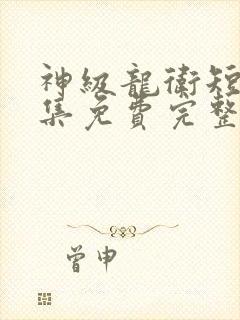 神級龍衛短
集免費完整
曾申